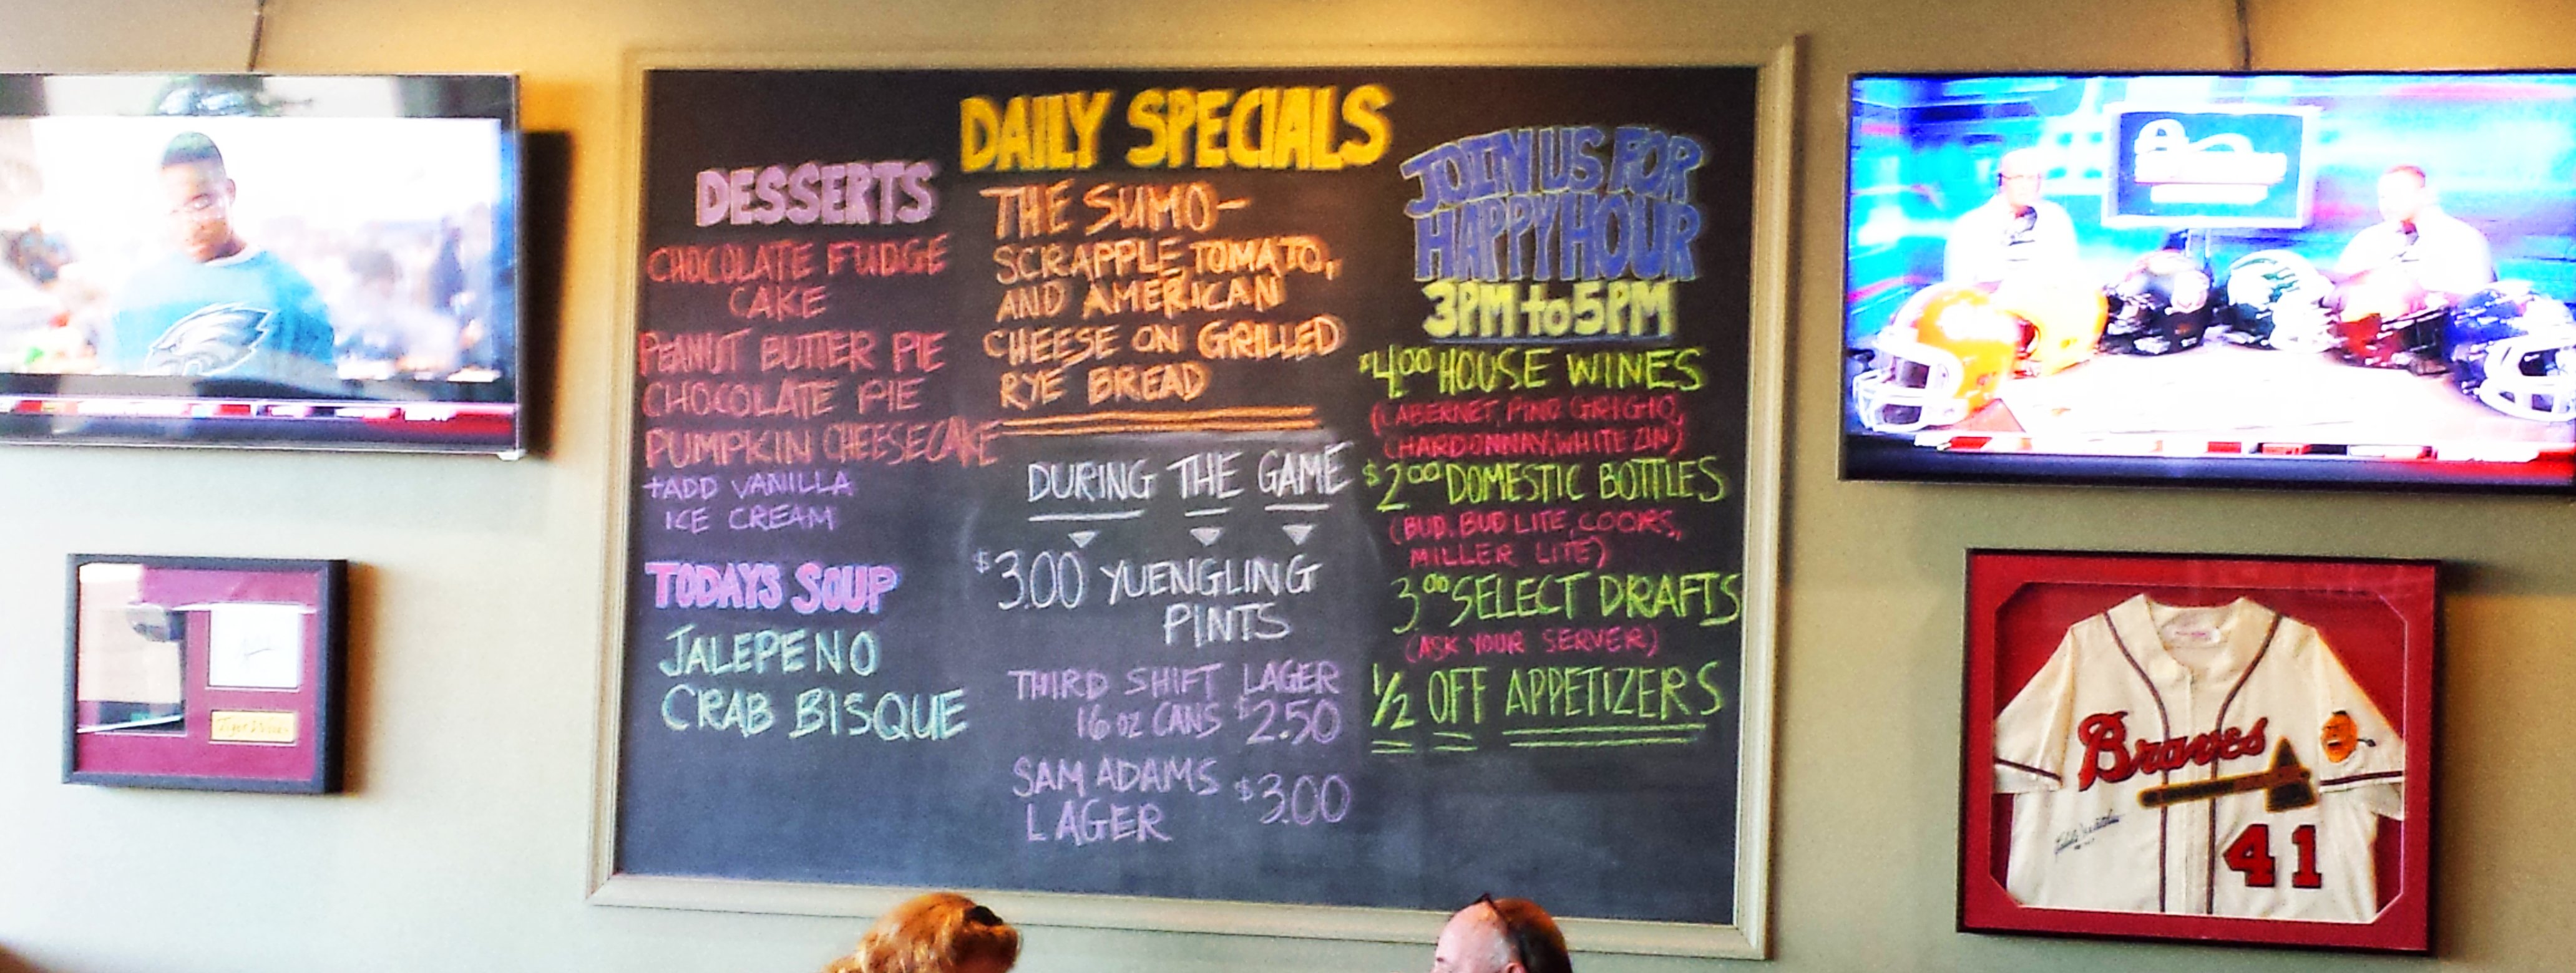 DAILY SPECIALS
DESSERTS
CHOCOLATE FUDGE
CAKE
PEANUT BUTTER PIE
CHOCOLATE PIE
PUMPKIN CHEESECAKE
+ADD VANILLA
ICE CREAM
TODAYS SOUP
JALEPENO
CRAB BISQUE
THE SUMO-
SCRAPPLE TOMATO,
AND AMERICAN
CHEESE ON GRILLED
RYE BREAD
DURING THE GAME
$3.00 YUENGLING
PINTS
THIRD SHIFT LAGER
16 OZ CANS $2.50
SAM ADAMS
LAGER $3.00
JOIN US FOR
HAPPY HOUR
3PM to 5PM
$4.00 HOUSE WINES
(CABERNET, PINO GRIGIO,
CHARDONNAY, WHITE ZIN)
$2.00 DOMESTIC BOTTLES
(BUD, BUD LITE, COORS,
MILLER LITE)
3.00 SELECT DRAFTS
(ASK YOUR SERVER)
1/2 OFF APPETIZERS
Braves
41